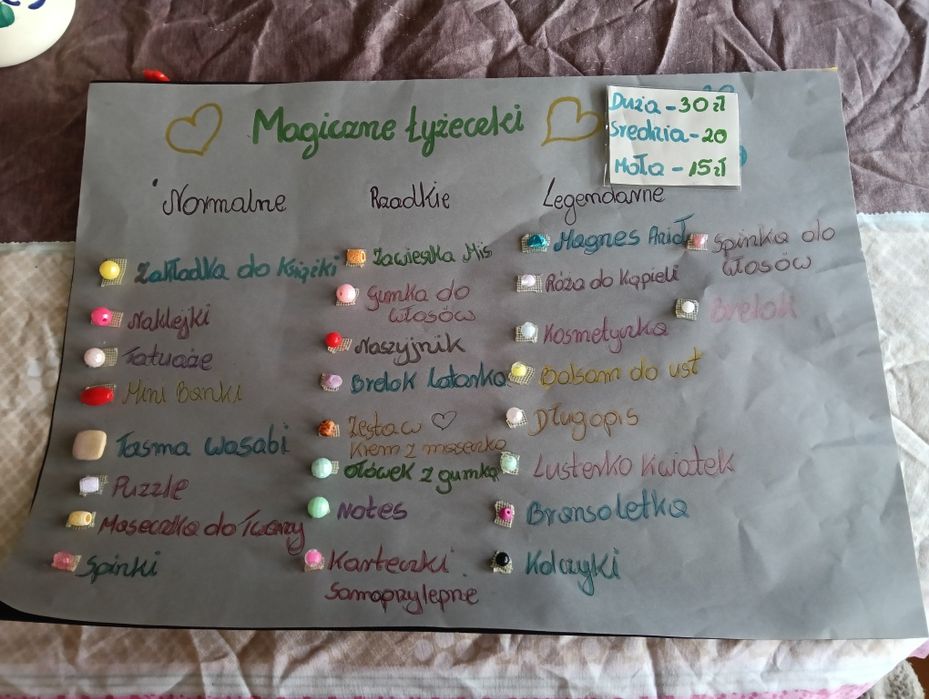 Magiczne Łyżeczki
Duża - 30 zł
Średnia - 20
Mała - 15 zł
Normalne
Zakładka do Książki
Naklejki
Tatuaże
Mini Banki
Tasma Wasabi
Puzzle
Maseczka do Twarzy
Spinki
Rzadkie
Zawieszka Miś
Gumka do
włosów
Naszyjnik
Brelok Latarka
Zestaw
Krem z maseczką
Ołówek z gumką
Notes
Karteczki
Samoprzylepne
Legendarne
Magnes
Róża do Kąpieli
Kosmetyczka
Balsam do ust
Długopis
Lusterko Kwiatek
Bransoletka
Kolczyki
Spinka do
Włosów
Brelok